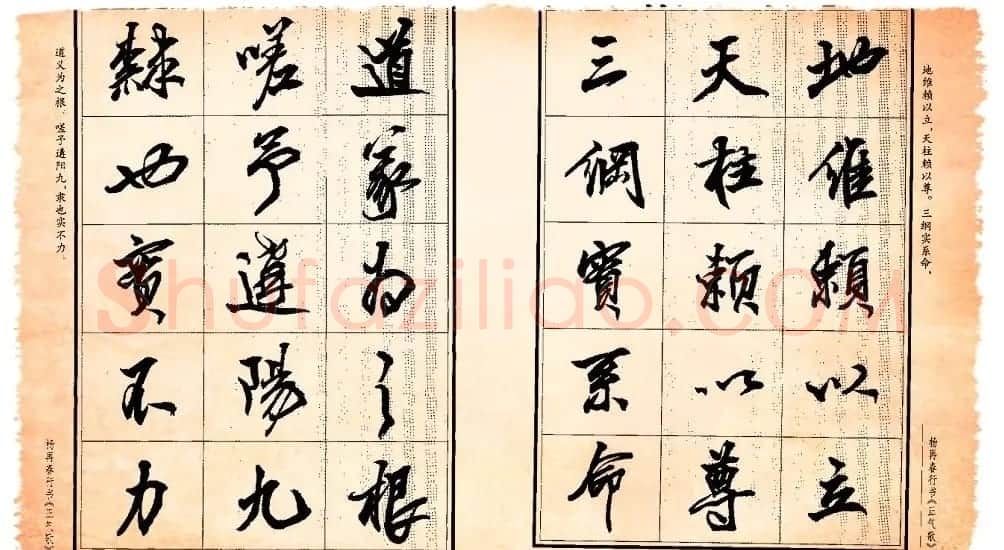 地维赖以立，天柱赖以尊。三纲实系命，
杨再春行书《正气歌》
地維賴以立
天柱賴以尊
三綱實系命
道義為之根
嗟予遘陽九
隸也實不力
道义为之根。嗟予遘阳九，隶也实不力。
杨再春行书《正气歌》
Shufaziliao.COM